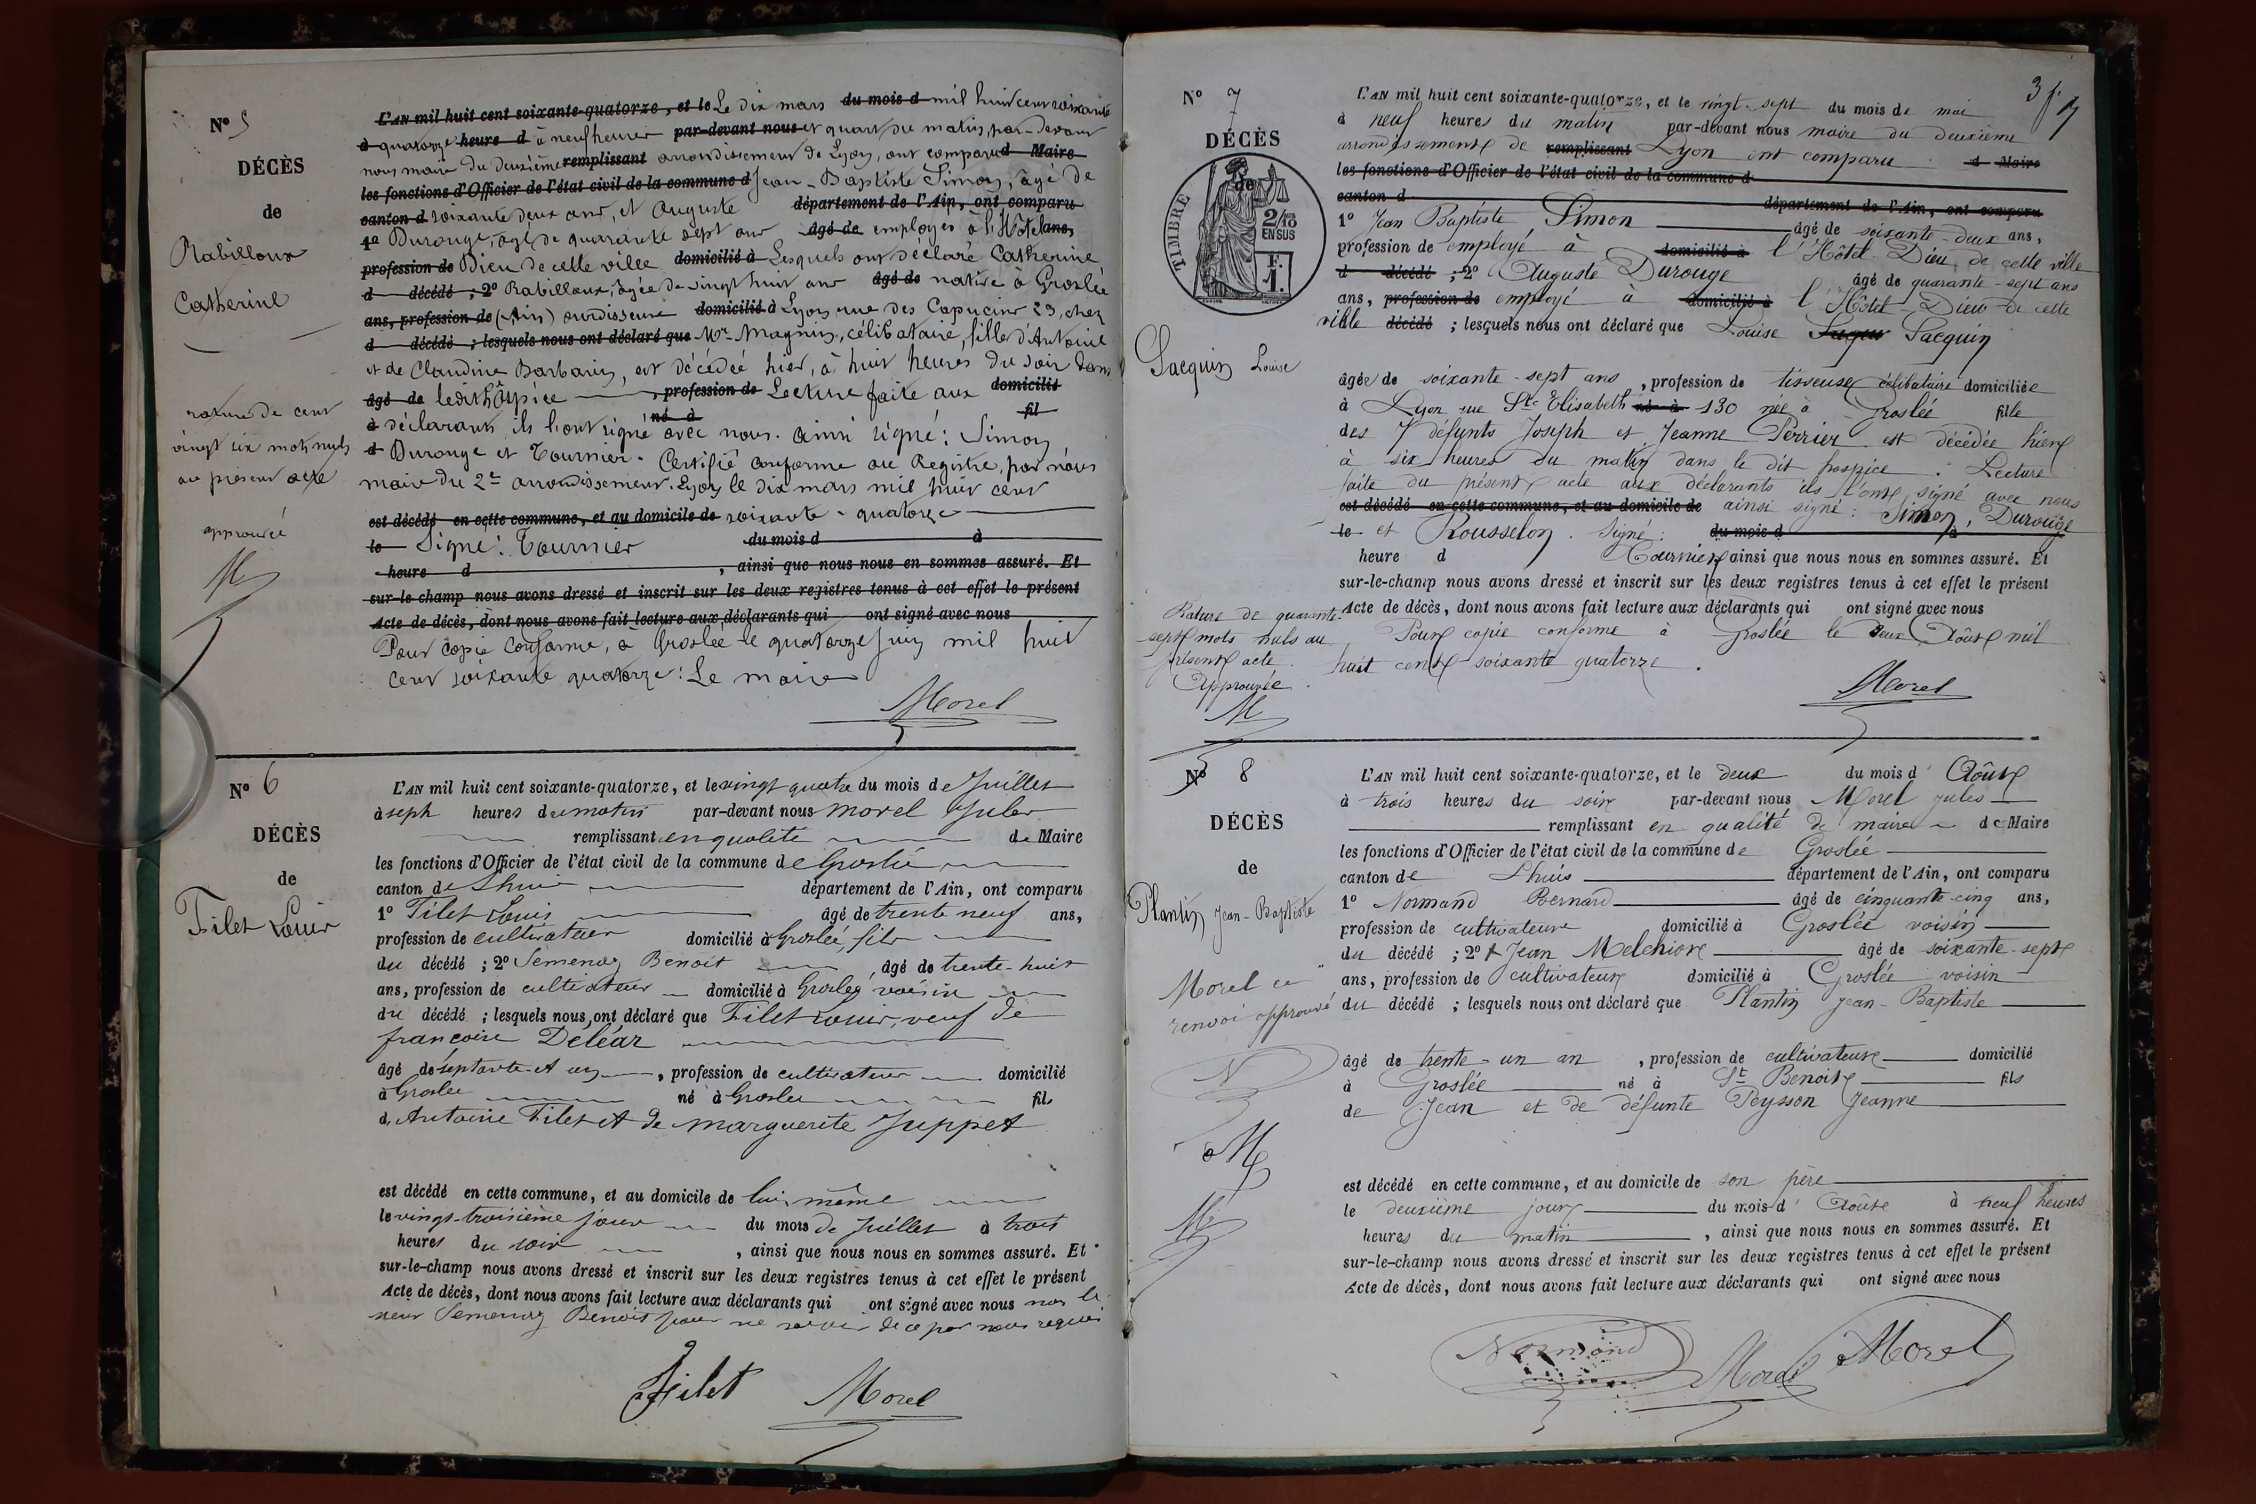 N° 5
DÉCÈS
de
Rabilloux
Catherine
rature de cent
vingt six mots nuls
au présent acte
approuvée
M
L'AN mil huit cent soixante-quatorze, et le Le dix mars du mois d mil huit cent soixante
à quatorze heure d à neuf heures par-devant nous et quart du matin, par-devant
nous maire du deuxième remplissant arrondissement de Lyon, ont comparu d Maire
les fonctions d'Officier de l'état civil de la commune d Jean-Baptiste Simon, âgé de
canton d soixante deux ans, et Auguste département de l'Ain, ont comparu
1° Durouge, âgé de quarante sept ans âgé de employés à l'Hôtel ans,
profession de Dieu de cette ville domicilié à Lesquels ont déclaré Catherine
d décédé ; 2° Rabilloux, âgée de vingt huit ans âgé de native à Groslée
ans, profession de (Ain) ourdisseuse domicilié à Lyon rue des Capucins 23, chez
d décédé ; lesquels nous ont déclaré que Mr Magnin, célibataire, fille d'Antoine
et de Claudine Barbarin, est décédée hier, à huit heures du soir dans
âgé de ledit hospice , profession de Lecture faite aux domicilié
à déclarants, ils l'ont signé né à avec nous. ainsi signé : Simon fil
d Durouge et Tournier. Certifié conforme au Registre, par nous
maire du 2e arrondissement. Lyon le dix mars mil huit cent
est décédé en cette commune, et au domicile de soixante-quatorze
le Signé : Tournier du mois d à
heure d , ainsi que nous nous en sommes assuré. Et
sur-le-champ nous avons dressé et inscrit sur les deux registres tenus à cet effet le présent
Acte de décès, dont nous avons fait lecture aux déclarants qui ont signé avec nous
Pour copie conforme, à Groslée le quatorze juin mil huit
cent soixante quatorze : Le maire
Morel
N° 6
DÉCÈS
de
Filet Louis
L'AN mil huit cent soixante-quatorze, et le vingt quatre du mois de Juillet
à sept heures du matin par-devant nous Morel Jules
remplissant en qualité de Maire
les fonctions d'Officier de l'état civil de la commune de Groslée
canton de Lhuis département de l'Ain, ont comparu
1° Filet Louis âgé de trente neuf ans,
profession de cultivateur domicilié à Groslée, fils
du décédé ; 2° Semenoz Benoit âgé de trente-huit
ans, profession de cultivateur domicilié à Groslée voisin
du décédé ; lesquels nous ont déclaré que Filet Louis, veuf de
françoise Deléaz
âgé de septante et un , profession de cultivateur domicilié
à Groslée né à Groslée fils
d, Antoine Filet et de Marguerite Juppet
est décédé en cette commune, et au domicile de lui même
le vingt-troisième jour du mois de Juillet à trois
heures du soir , ainsi que nous nous en sommes assuré. Et
sur-le-champ nous avons dressé et inscrit sur les deux registres tenus à cet effet le présent
Acte de décès, dont nous avons fait lecture aux déclarants qui ont signé avec nous non le
sieur Semenoz Benoit pour ne savoir de ce par nous requis
Filet Morel
3 f.
N° 7
DÉCÈS
de
TIMBRE
2/10 EN SUS
1 F.
Sacquin Louise
Rature de quarante-
sept mots nuls au
présent acte.
Approuvée.
M
L'AN mil huit cent soixante-quatorze, et le vingt-sept du mois de mai
à neuf heures du matin par-devant nous maire du deuxième
arrondissement de remplissant Lyon ont comparu d Maire
les fonctions d'Officier de l'état civil de la commune d
canton d département de l'Ain, ont comparu
1° Jean Baptiste Simon âgé de soixante-deux ans,
profession de employé à domicilié à l'Hôtel-Dieu de cette ville
d décédé ; 2° Auguste Durouge âgé de quarante-sept ans
ans, profession de employé à domicilié à l'Hôtel-Dieu de cette
ville décédé ; lesquels nous ont déclaré que Louise Sacquin
âgée de soixante-sept ans , profession de tisseuse célibataire domiciliée
à Lyon rue Ste Elisabeth né à 130 née à Groslée fille
des défunts Joseph et Jeanne Perrier est décédée hier
à six heures du matin dans le dit hospice. Lecture
faite du présent acte aux déclarants ils l'ont signé avec nous
est décédé en cette commune, et au domicile de ainsi signé : Simon, Durouge
le et Rousselon. Signé : du mois d à
heure d Tournier ainsi que nous nous en sommes assuré. Et
sur-le-champ nous avons dressé et inscrit sur les deux registres tenus à cet effet le présent
Acte de décès, dont nous avons fait lecture aux déclarants qui ont signé avec nous
Pour copie conforme à Groslée le deux Août mil
huit cent soixante quatorze.
Morel
N° 8
DÉCÈS
de
Plantin Jean-Baptiste
Morel ce
renvoi approuvé
N
M
M
L'AN mil huit cent soixante-quatorze, et le deux du mois d' Août
à trois heures du soir par-devant nous Morel Jules
remplissant en qualité de maire de Maire
les fonctions d'Officier de l'état civil de la commune de Groslée
canton de Lhuis département de l'Ain, ont comparu
1° Normand Bernard âgé de cinquante-cinq ans,
profession de cultivateur domicilié à Groslée voisin
du décédé ; 2° Jean Melchiore âgé de soixante-sept
ans, profession de cultivateur domicilié à Groslée voisin
du décédé ; lesquels nous ont déclaré que Plantin Jean-Baptiste
âgé de trente-un an , profession de cultivateur domicilié
à Groslée né à St Benoit fils
de Jean et de défunte Peysson Jeanne
est décédé en cette commune, et au domicile de son père
le deuxième jour du mois d' Août à neuf heures
heures du matin , ainsi que nous nous en sommes assuré. Et
sur-le-champ nous avons dressé et inscrit sur les deux registres tenus à cet effet le présent
Acte de décès, dont nous avons fait lecture aux déclarants qui ont signé avec nous
Normand Morel Morel